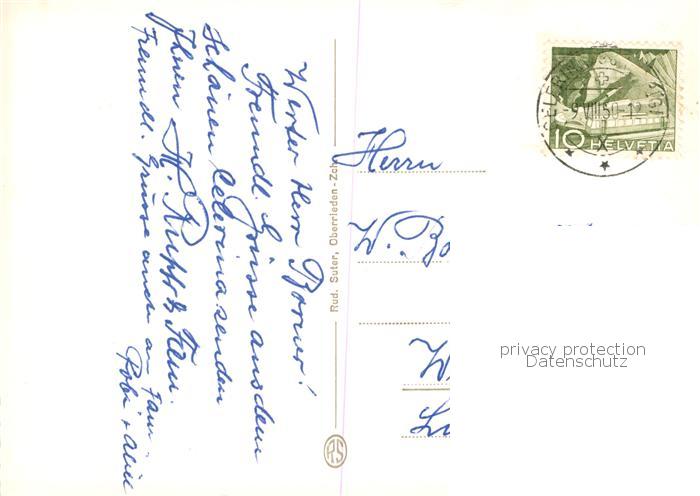 Werter Herr Borner!
Freundl. Grüsse aus dem
schönen Celerina senden
Ihnen H. & Fam.
Freundl. Grüsse auch an Fam.
Robi +
Rud. Suter, Oberrieden-Zch.
RS
Herrn
W.
10 HELVETIA
-9.VIII.50-12
privacy protection
Datenschutz